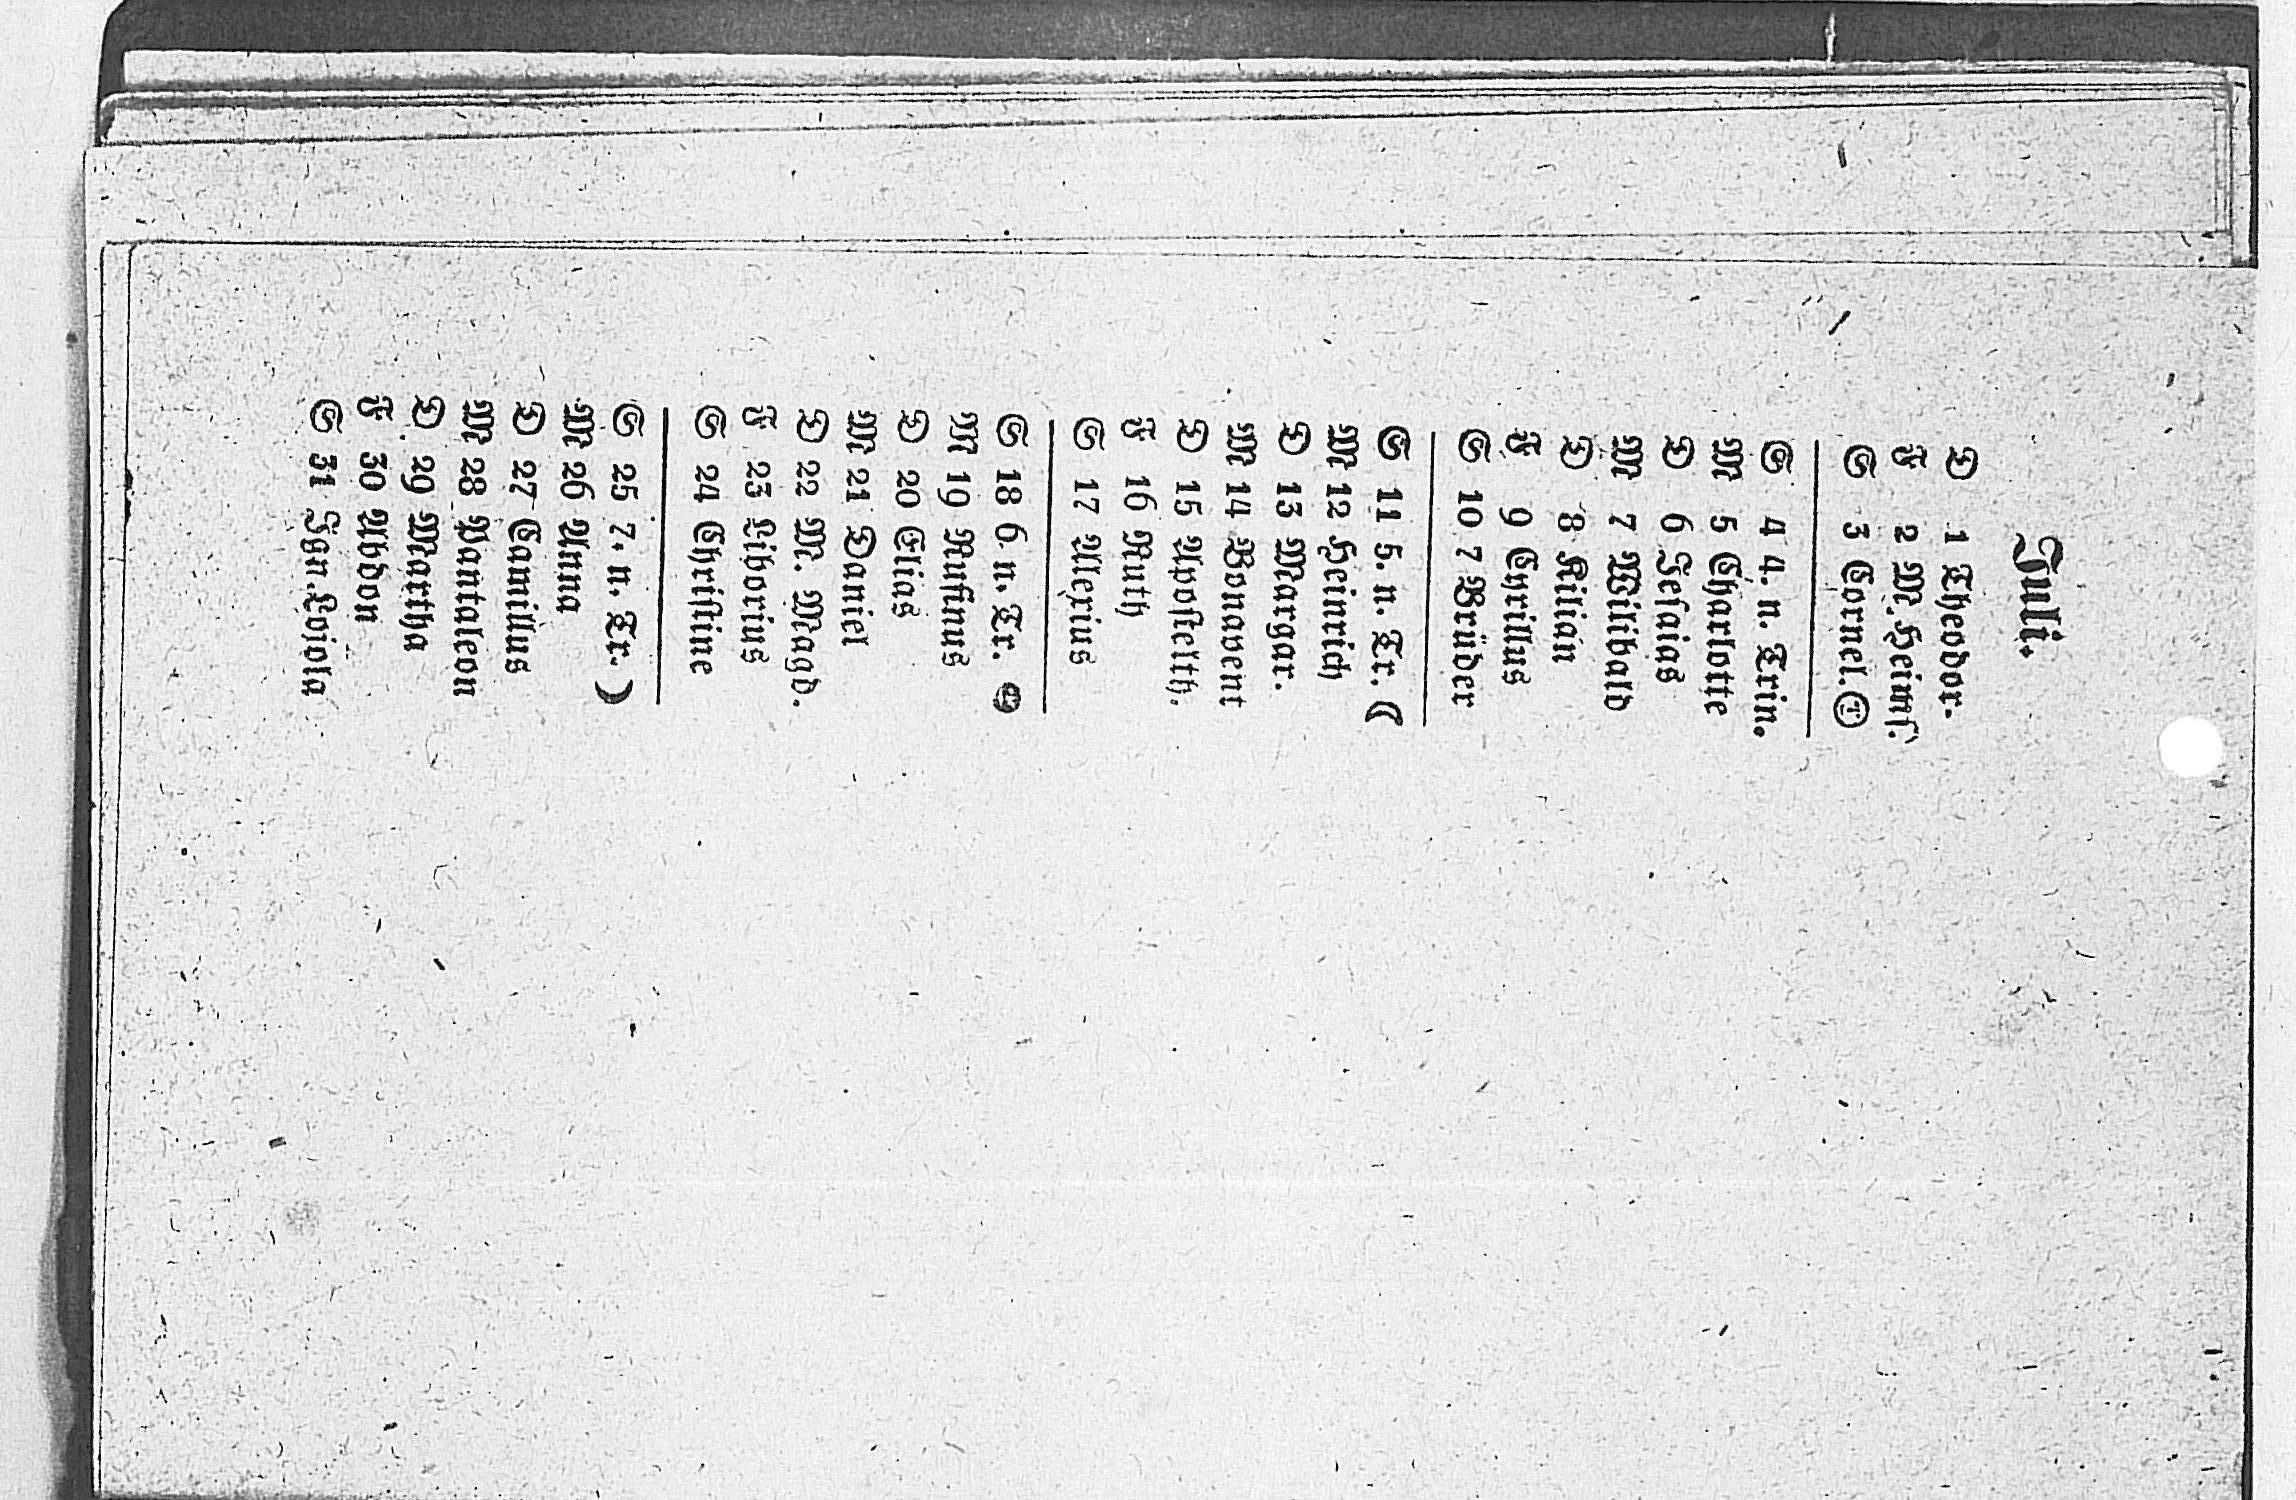 Juli.
D 1 Theodor.
F 2 M. Heims.
S 3 Cornel.
S 4 4. n. Trin.
M 5 Charlotte
D 6 Jesaias
M 7 Wilibald
D 8 Kilian
F 9 Cyrillus
S 10 7 Brüder
S 11 5. n. Tr. ☾
M 12 Heinrich
D 13 Margar.
M 14 Bonavent
D 15 Apostelth.
F 16 Ruth
S 17 Alexius
S 18 6. n. Tr.
M 19 Rufinus
D 20 Elias
M 21 Daniel
D 22 M. Magd.
F 23 Liborius
S 24 Christine
S 25 7. n. Tr. ☽
M 26 Anna
D 27 Camillus
M 28 Pantaleon
D 29 Martha
F 30 Abdon
S 31 Ign. Lojola